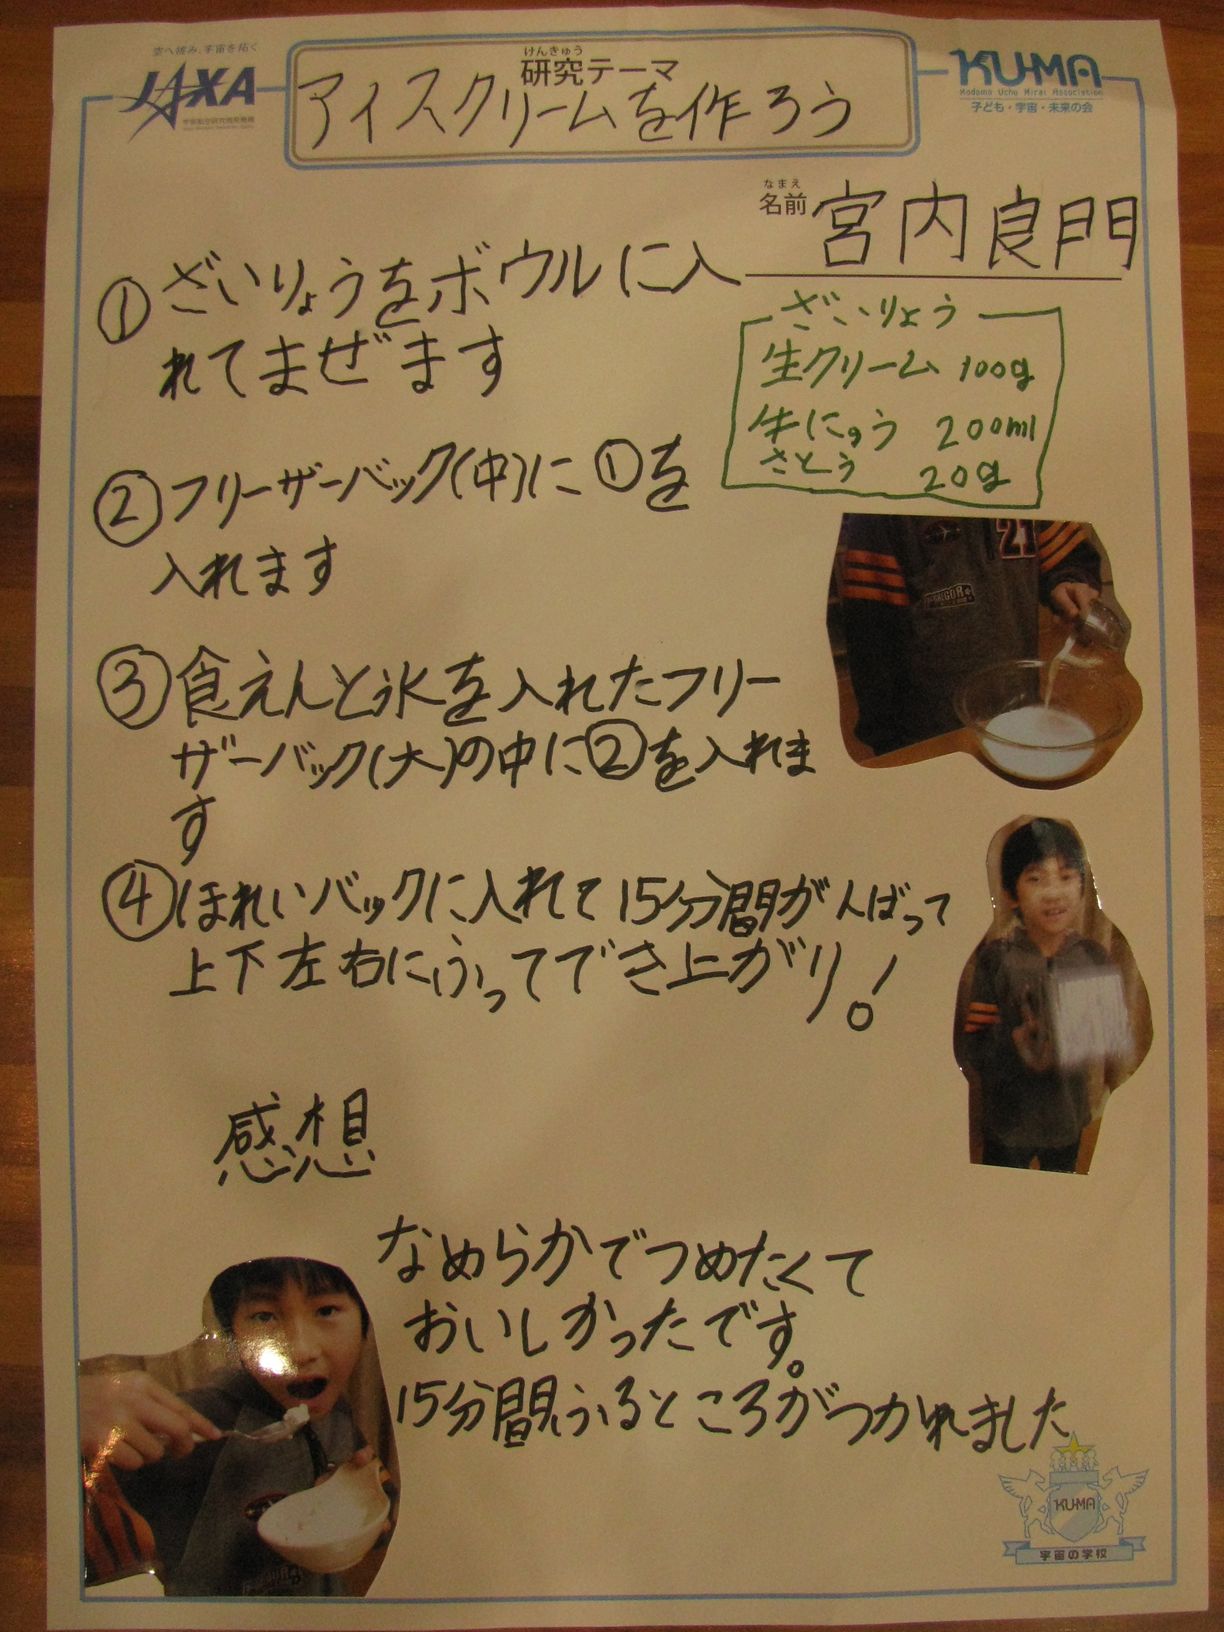 空へ挑み、宇宙を拓く
JAXA
けんきゅう
研究テーマ
アイスクリームを作ろう
KU-MA
Kodomo Uchu Mirai Association
子ども・宇宙・未来の会
なまえ
名前 宮内良門
①ざいりょうをボウルに入
れてまぜます
ざいりょう
生クリーム 100g
牛にゅう 200ml
さとう 20g
②フリーザーバック(中)に①を
入れます
21
③食えんと氷を入れたフリー
ザーバック(大)の中に②を入れま
す
④ほれいバックに入れて15分間がんばって
上下左右にふってでき上がり!
感想
なめらかでつめたくて
おいしかったです。
15分間ふるところがつかれました
KU-MA
宇宙の学校